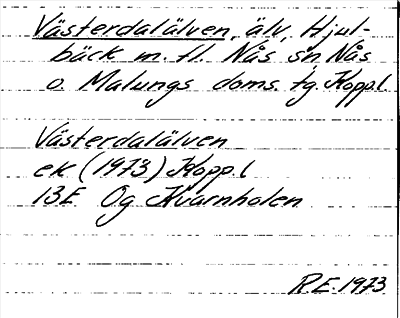 Västerdalälven, älv, Hjul-
bäck m. fl. Nås sn, Nås
o. Malungs doms. tg. Kopp.l.
Västerdalälven
ek (1973) Kopp. l
13E Og Kvarnholen
R.E. 1973